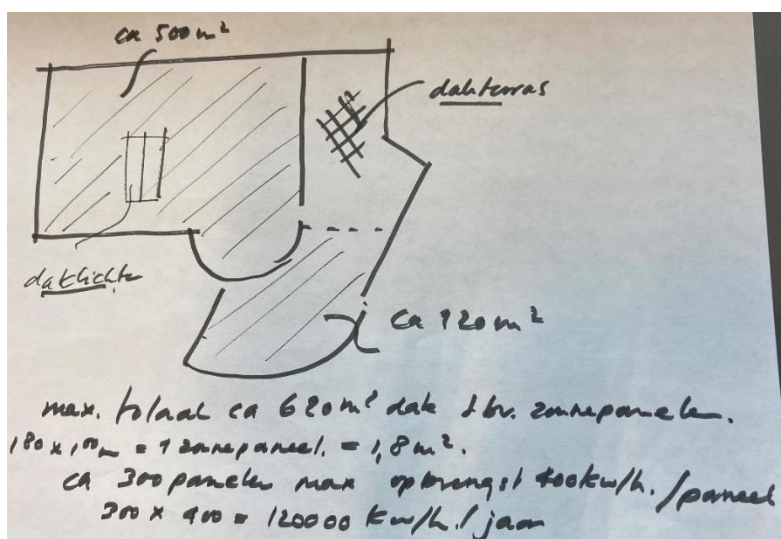 ca 500 m²
dakterras
daklichten
ca 120 m²
max. totaal ca 620 m² dak t.b.v. zonnepanelen.
180 x 100 = 1 zonnepaneel. = 1,8 m².
ca 300 panelen max opbrengst 400 kw/h. / paneel
300 x 400 = 120000 kw/h. / jaar